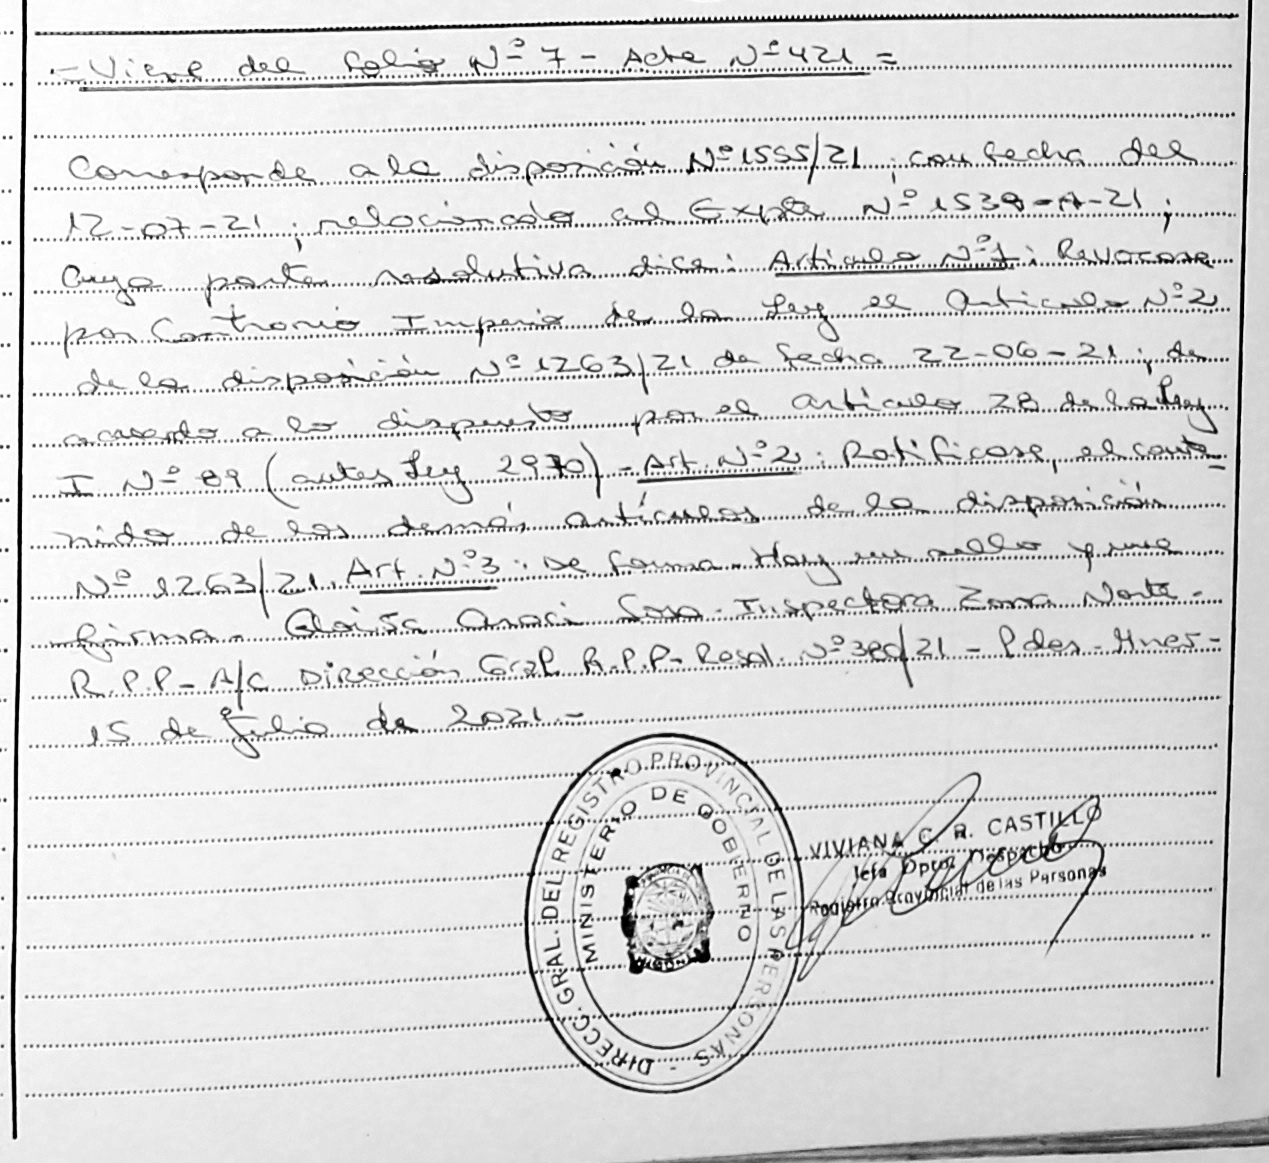 - Viene del folio Nº 7 - Acta Nº 421 =
Corresponde a la disposición Nº 1555/21; con fecha del
12-07-21; relacionado al Expte Nº 1539-A-21;
Cuya parte resolutiva dice: Artículo Nº 1: Revocase
por Contrario Imperio de la Ley el Articulo Nº 2
de la disposición Nº 1263/21 de fecha 22-06-21; de
acuerdo a lo dispuesto por el artículo 28 de la Ley
I Nº 89 (antes Ley 2970) - Art. Nº 2: Ratificase, el conte-
nido de los demás artículos de la disposición
Nº 1263/21. Art. Nº 3: De forma. Hay un sello y una
firma. Sosa - Inspectora Zona Norte -
R.P.P - A/C Dirección Gral R.P.P - Resol. Nº 380/21 - Pdas - Mnes -
15 de Julio de 2021. -
DIRECC. GRAL. DEL REGISTRO PROVINCIAL DE LAS PERSONAS -
MINISTERIO DE GOBIERNO
MISIONES
VIVIANA C. R. CASTILLO
Jefa Dpto. Despacho
Registro Provincial de las Personas